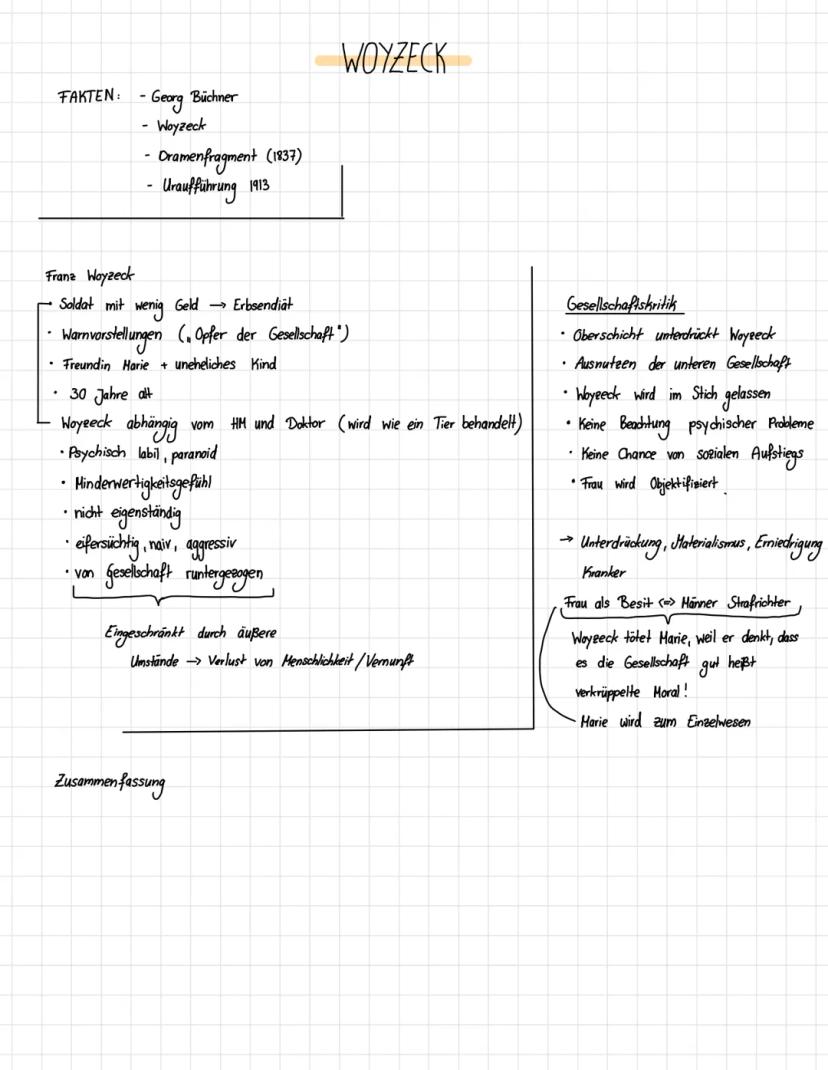 WOYZECK
FAKTEN: - Georg Büchner
- Woyzeck
- Dramenfragment (1837)
- Uraufführung 1913
Franz Woyzeck
Soldat mit wenig Geld → Erbsendiät
• Warnvorstellungen („Opfer der Gesellschaft")
• Freundin Marie + uneheliches Kind
• 30 Jahre alt
Woyzeck abhängig vom HM und Doktor (wird wie ein Tier behandelt)
• Psychisch labil, paranoid
• Minderwertigkeitsgefühl
• nicht eigenständig
• eifersüchtig, naiv, aggressiv
• von Gesellschaft runtergezogen
Eingeschränkt durch äußere
Umstände → Verlust von Menschlichkeit/Vernunft
Gesellschaftskritik
• Oberschicht unterdrückt Woyzeck
• Ausnutzen der unteren Gesellschaft
• Woyzeck wird im Stich gelassen
• Keine Beachtung psychischer Probleme
• Keine Chance von sozialen Aufstiegs
• Frau wird Objektifiziert.
→ Unterdrückung, Materialismus, Erniedrigung
Kranker
Frau als Besit <=> Männer Strafrichter
Woyzeck tötet Marie, weil er denkt, dass
es die Gesellschaft gut heißt
verkrüppelte Moral!
Marie wird zum Einzelwesen
Zusammenfassung